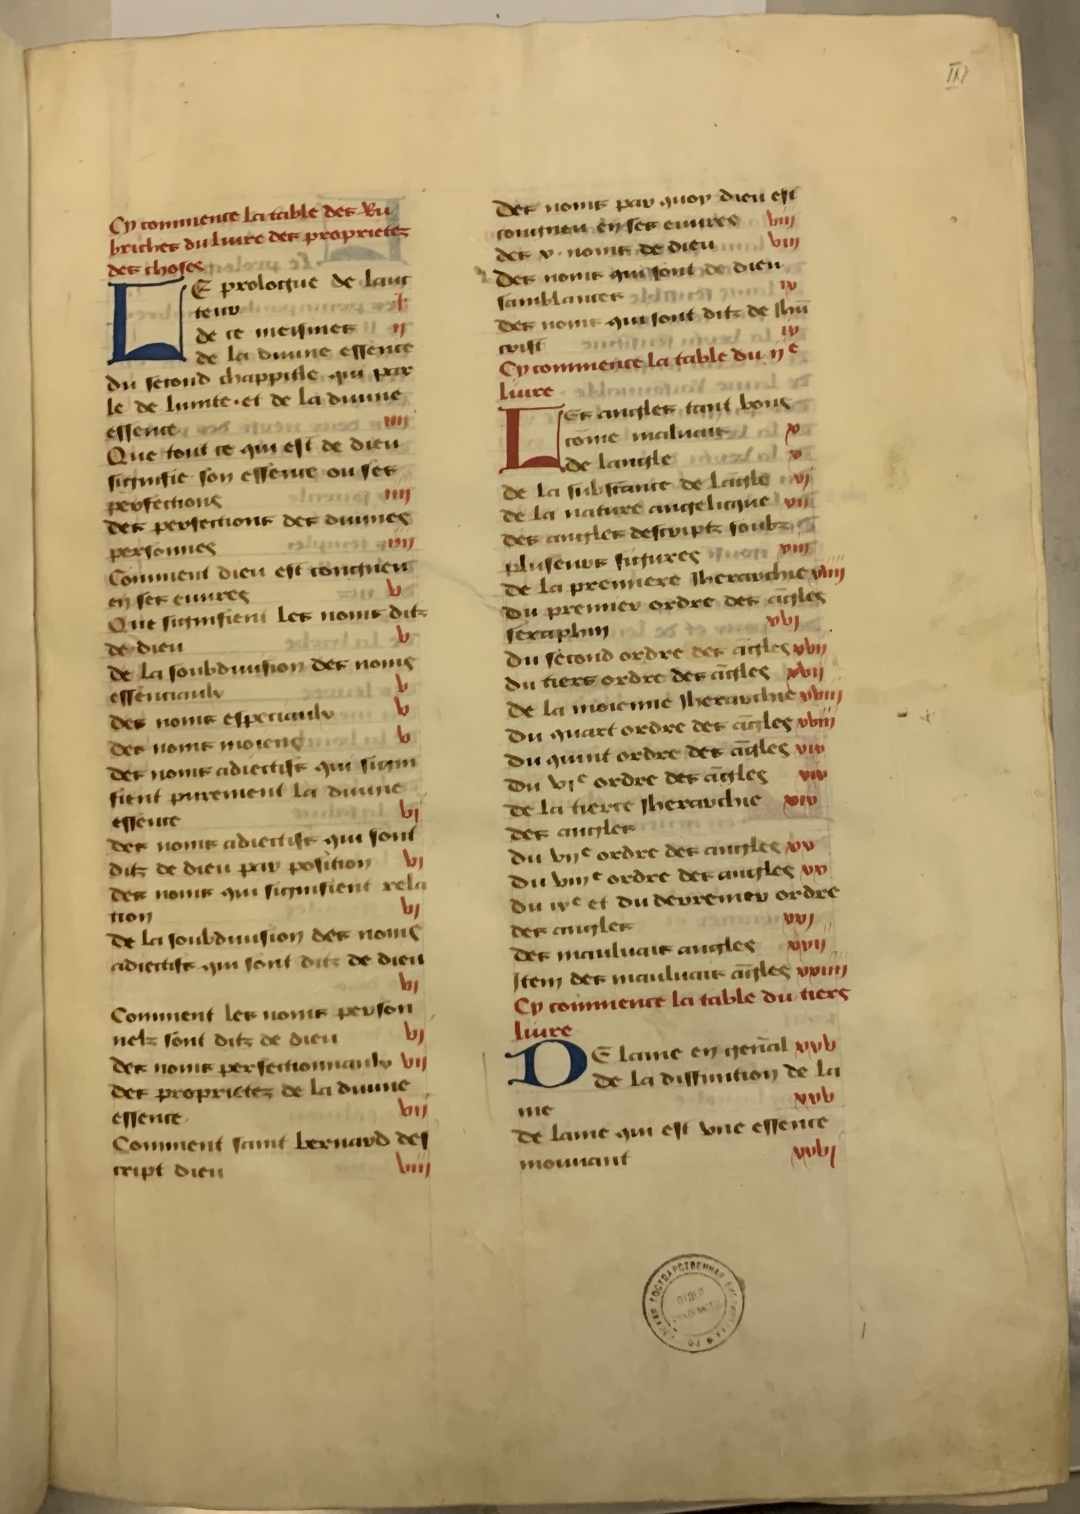 Cy commence la table des Ru
briches du liure des proprietez
des choses
LE prologue de lauc
teur j
de ce meismes ij
de la diuine essence
du second chappitle qui par
le de lunite et de la diuine
essence iiij
Que tout ce qui est de dieu
signifie son essence ou ses
perfections iiij
des perfections des diuines
personnes iiij
Comment dieu est congneu
en ses euures v
Que signifient les noms ditz
de dieu v
de la soubdiuision des noms
essenciaulx v
des noms especiaulx v
des noms moiens v
des noms adiectifs qui signi
fient purement la diuine
essence vj
des noms adiectifs qui sont
ditz de dieu par position vj
des noms qui signifient rela
tion vj
de la soubdiuision des noms
adiectifs qui sont ditz de dieu
vj
Comment les noms person
nelz sont ditz de dieu vj
des noms perfectionnaulx vij
des proprietez de la diuine
essence vij
Comment saint bernard des
cript dieu viij
des noms par quoy dieu est
congneu en ses euures viij
des x. noms de dieu viij
des noms qui sont de dieu
samblances ix
des noms qui sont ditz de Jhu
crist ix
Cy commence la table du ije
liure
LEs angles tant bons
come maluais x
de langle x
de la substance de lāgle xj
de la nature angelicque xij
des angles descriptz soubz
pluseurs figures xiij
de la premiere Jherarchie xiiij
du premier ordre des āgles
seraphin xvj
du second ordre des āgles xvij
du tiers ordre des āgles xvij
de la moienne Jherarchie xviij
du quart ordre des āgles xviij
du quint ordre des āgles xix
du vje ordre des āgles xix
de la tierce Jherarchie xix
des angles
du vije ordre des angles xx
du viije ordre des angles xx
du ixe et du derrenier ordre
des angles xxj
des mauluais angles xxij
Item des mauluais āgles xxiiij
Cy commence la table du tiers
liure
DE lame en gen̄al xxv
de la diffinition de la
me xxv
de lame qui est vne essence
mouuant xxvj